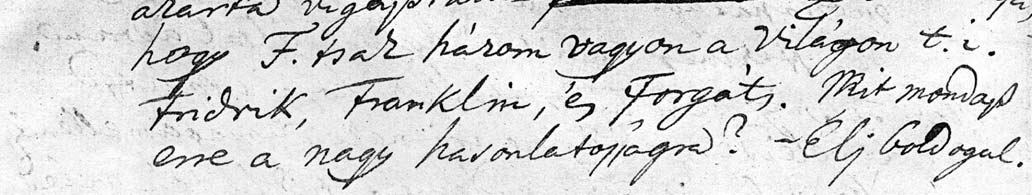 hogy F. tsak három vagyon a Világon t. i.
Fridrik, Franklin, és Forgáts. Mit mondasz
erre a nagy hasonlatosságra? – Elj boldogul.